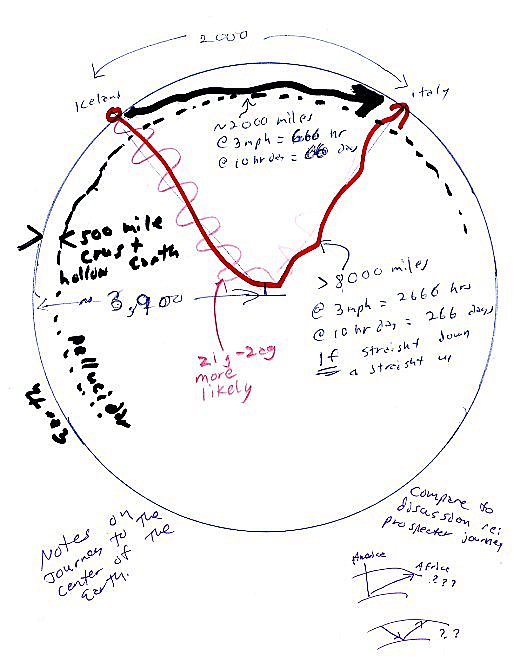 2000
Iceland
Italy
~2000 miles
@ 3mph = 666 hr
@ 10 hr day = 66 days
500 mile
crust
hollow Earth
~ 3,900
> 8000 miles
@ 3mph = 2666 hrs
@ 10 hr day = 266 days
If straight down
& straight up
zig-zag
more
likely
Pellucidar
Notes on
Journey to the
center of the
Earth.
Compare to
discussion re:
prospector journey
Africa
???
??